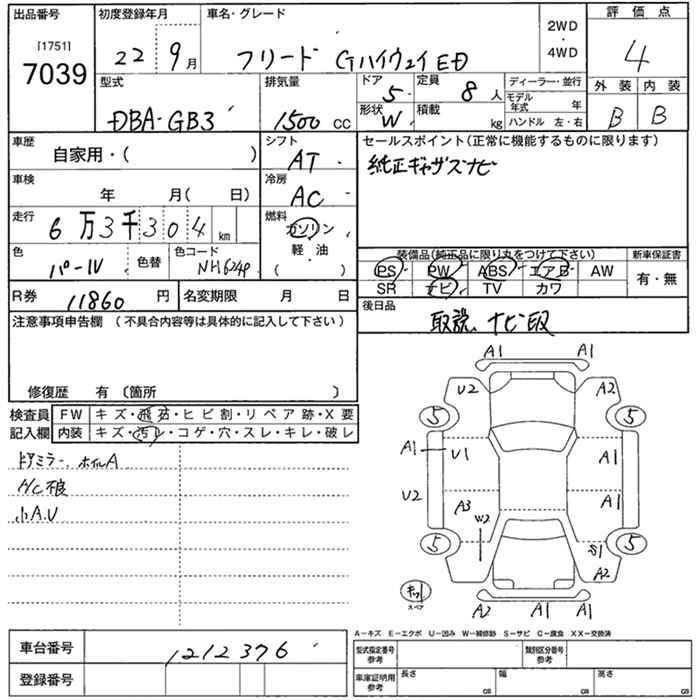 出品番号 初度登録年月 車名・グレード 2WD・4WD 評価点
[1751] 7039 22 9月 フリード Gハイウェイ ED 4
型式 排気量 ドア 5 定員 8人 ディーラー・並行 外装 内装
DBA-GB3 1500 cc 形状 W 積載 kg モデル年式 年 B B
ハンドル 左・右
車歴 自家用・( ) シフト AT セールスポイント(正常に機能するものに限ります)
車検 年 月( 日) 冷房 AC 純正ギャザズナビ
走行 6万3千304km 燃料 ガソリン・軽・油 ( )
色 パール 色替 色コード NH624P 装備品(純正品に限り丸をつけて下さい) 新車保証書
PS PW ABS エアB AW 有・無
SR ナビ TV カワ
R券 11860円 名変期限 月 日 後日品
注意事項申告欄(不具合内容等は具体的に記入して下さい) 取説、ナビ取
修復歴 有〔箇所 〕
検査員 FW キズ・飛石・ヒビ割・リペア跡・X要
記入欄 内装 キズ・汚レ・コゲ・穴・スレ・キレ・破レ
ドアミラー、ホイルA
小A.U
A1 A1
U2 A2
5 5
A1 U1 A1
U2 A1
A3 W2
5 S1 5
A2
スペア
A2 A1 A1
A－キズ E－エクボ U－凹み W－補修跡 S－サビ C－腐食 XX－交換済
車台番号 1212376 型式指定番号 参考 類別区分番号 参考
登録番号 車庫証明用 参考 長さ cm 幅 cm 高さ cm